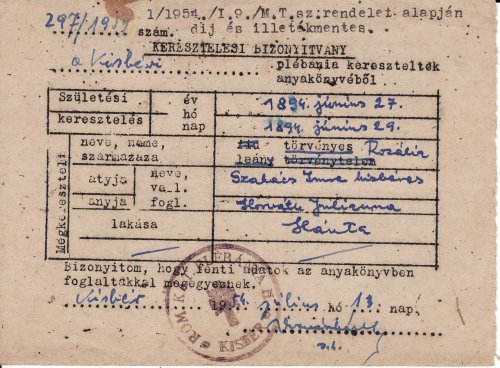 297/1954 szám.
1/1954./I.9./M.T.sz.rendelet alapján
díj és illetékmentes.
KERESZTELESI BIZONYITVANY
a Kisbéri plébánia keresztelték
anyakönyvéből
Születési év 1894. június 27.
hó
keresztelés nap 1894. június 29.
Megkereszteli
neve, neme, fiú törvényes Rozália
származása leány törvénytelen
atyja neve, Szakács Imre
vall.
anyja fogl. Horváth Julianna
lakása Hánta
Bizonyitom, hogy fenti adatok az anyakönyvben
foglaltakkal megegyeznek.
Kisbér 1954. július hó 13. nap.
RÓM. KATH. PLÉBÁNIA
KISBÉR